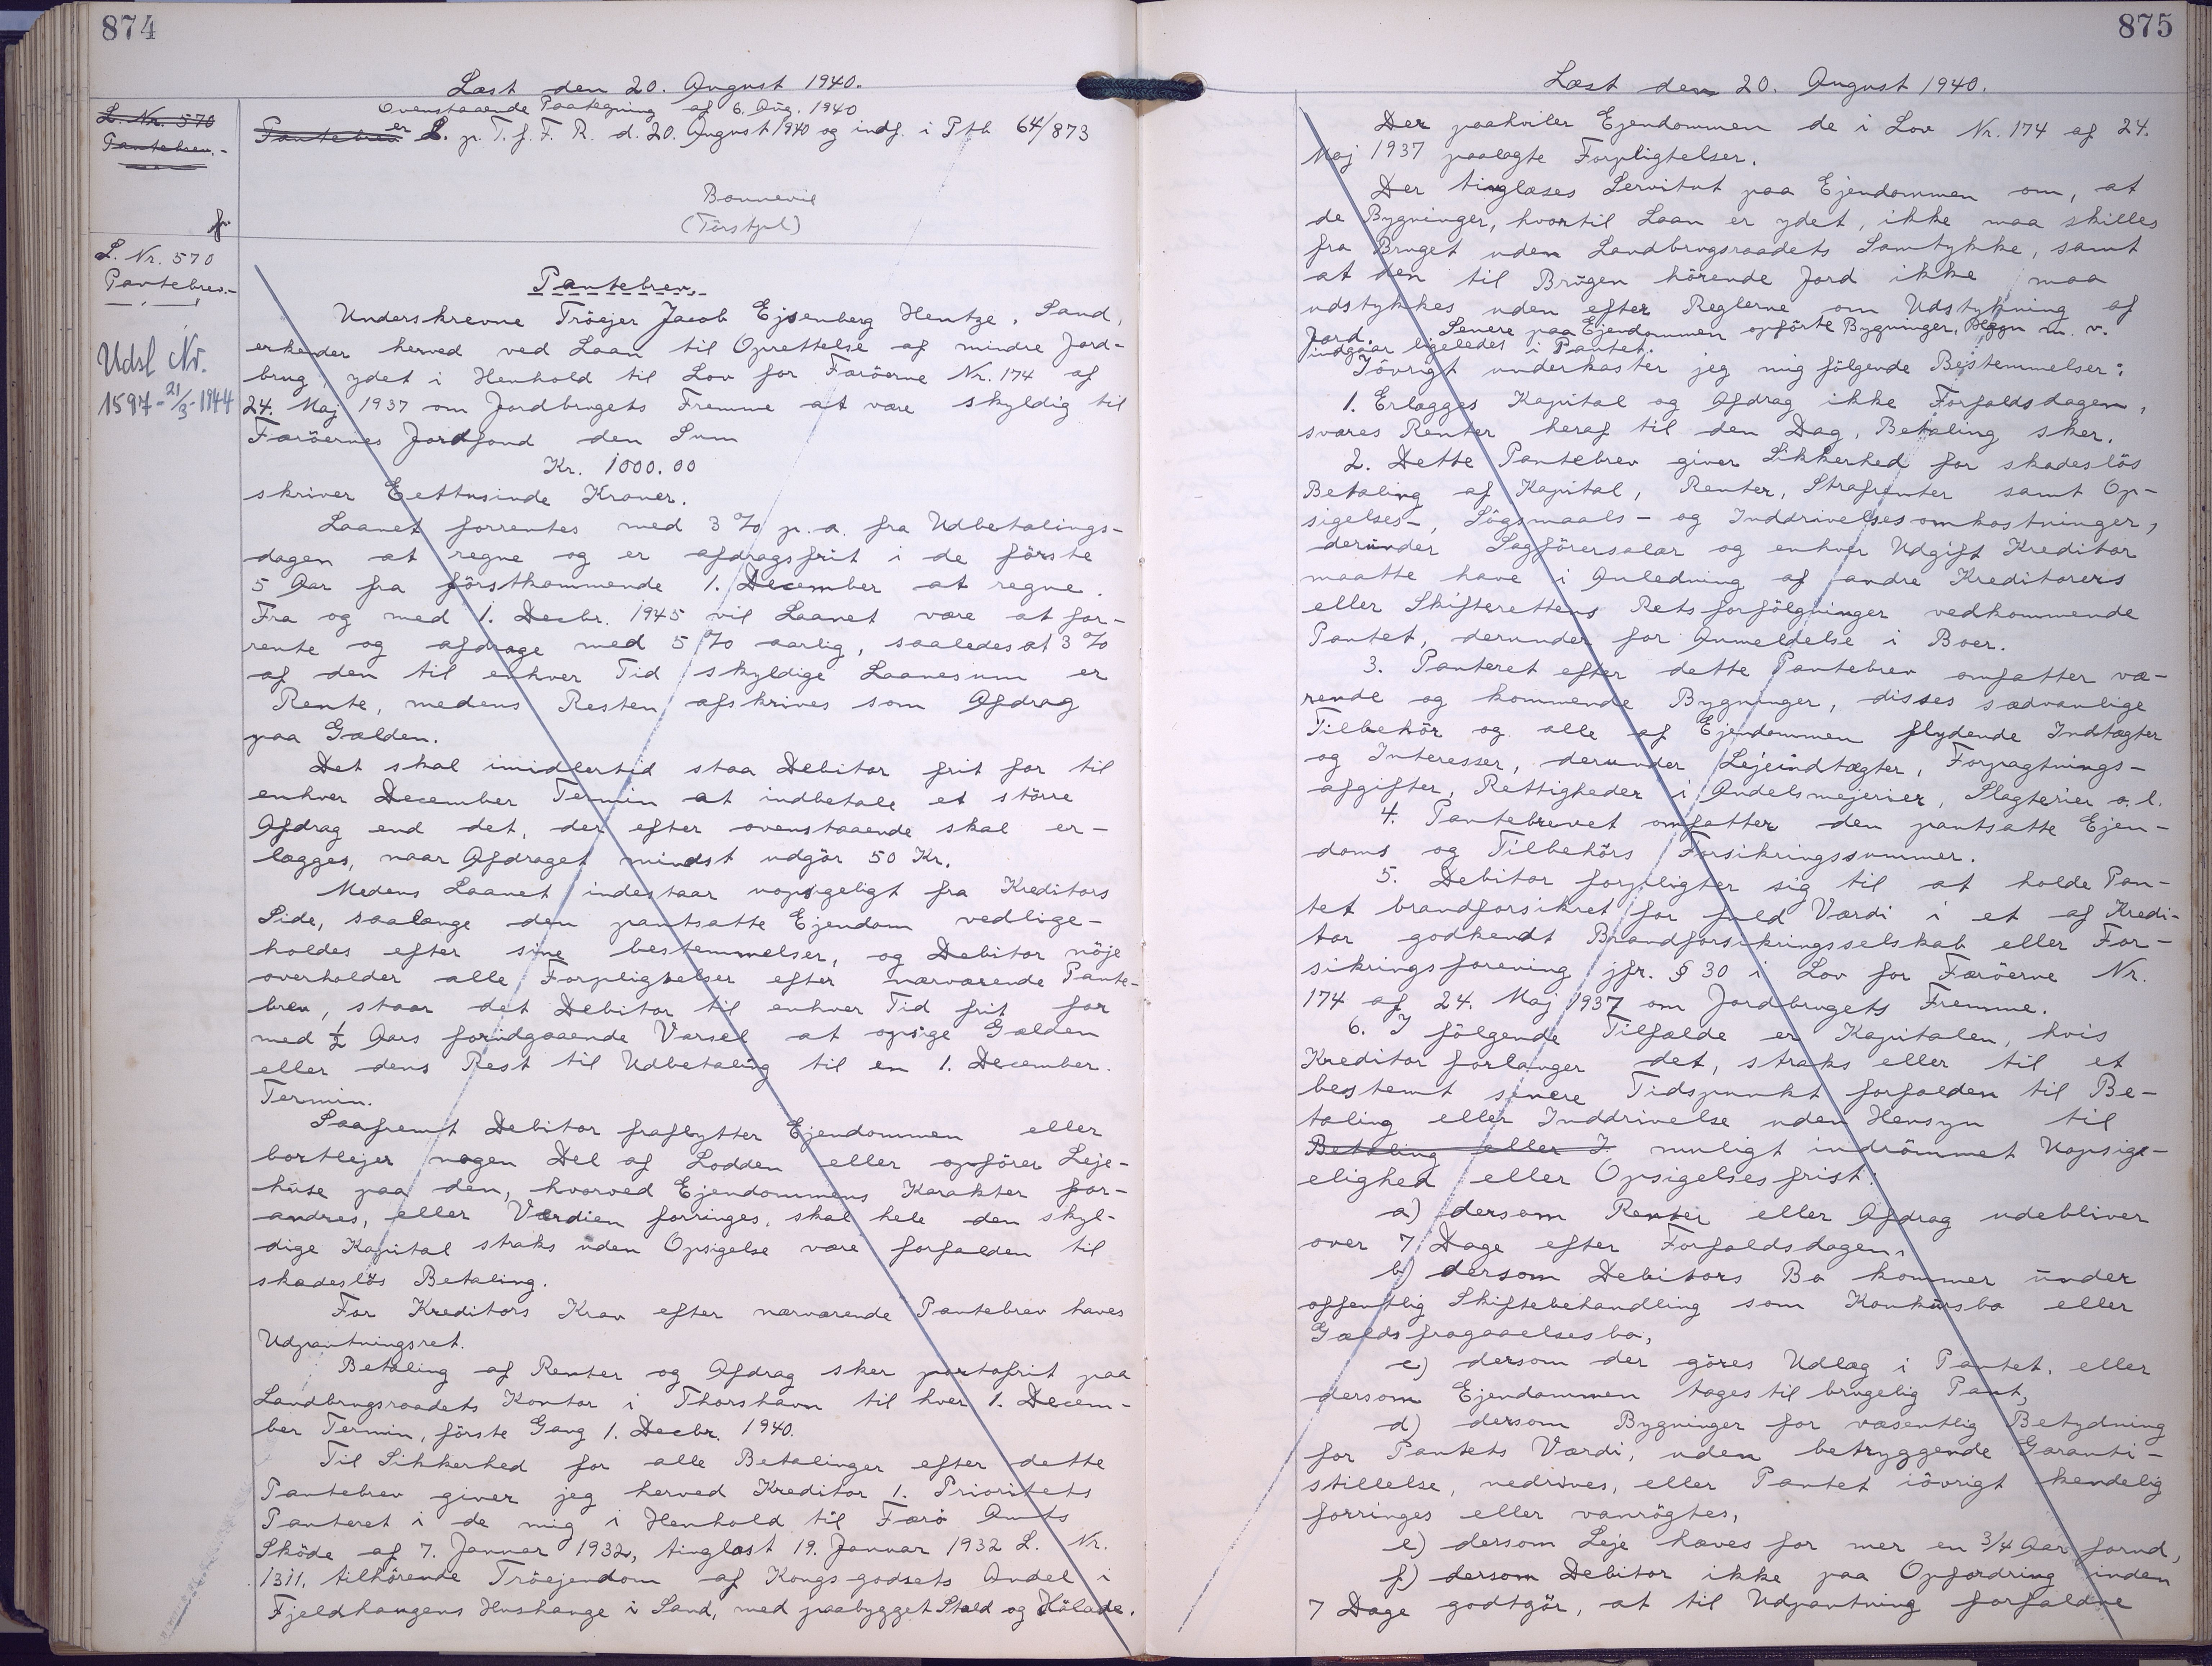 874
Læst den 20. August 1940.
L. Nr. 570
Pantebrev.-
Ovenstaaende Paategning af 6. Aug. 1940
Pantebrev er L. p. T. f. F. R. d. 20. August 1940 og indf. i Ptb 64/873
Bonnevie
L. Nr. 570
Pantebrev.-
Udsl Nr.
1597-21/3-1944
Pantebrev.
Underskrevne Tröejer Jacob Ejsenberg Hentze, Sand,
erkender herved ved Laan til Oprettelse af mindre Jord-
brug, ydet i Henhold til Lov for Færöerne Nr. 174 af
24. Maj 1937 om Jordbrugets Fremme at være skyldig til
Færöernes Jordfond den Sum
Kr. 1000.00
skriver Eettusinde Kroner.
Laanet forrentes med 3 % p. a. fra Udbetalings-
dagen at regne og er afdragsfrit i de förste
5 Aar fra förstkommende 1. December at regne.
Fra og med 1. Decbr. 1945 vil Laanet være at for-
rente og afdrage med 5 % aarlig, saaledes at 3 %
af den til enhver Tid skyldige Laanesum er
Rente, medens Resten afskrives som Afdrag
paa Gælden.
Det skal imidlertid staa Debitor frit for til
enhver December Termin at indbetale et större
Afdrag end det, der efter ovenstaaende skal er-
lægges, naar Afdraget mindst udgör 50 Kr.
Medens Laanet indestaar uopsigeligt fra Kreditors
Side, saalænge den pantsatte Ejendom vedlige-
holdes efter sine bestemmelser, og Debitor nöje
overholder alle Forpligtelser efter nærværende Pante-
brev, staar det Debitor til enhver Tid frit for
med ½ Aars forudgaaende Varsel at opsige Gælden
eller dens Rest til Udbetaling til en 1. December.
Termin.
Saafremt Debitor fraflytter Ejendommen eller
bortlejer nogen Del af Lodden eller opförer Leje-
huse paa den, hvorved Ejendommens Karakter for-
andres, eller Værdien forringes, skal hele den skyl-
dige Kapital straks uden Opsigelse være forfalden til
skadeslös Betaling.
For Kreditors Krav efter nærværende Pantebrev haves
Udpantningsret.
Betaling af Renter og Afdrag sker portofrit paa
Landbrugsraadets Kontor i Thorshavn til hver 1. Decem-
ber Termin, förste Gang 1. Decbr. 1940.
Til Sikkerhed for alle Betalinger efter dette
Pantebrev giver jeg herved Kreditor 1. Prioritets
Panteret i de mig i Henhold til Færö Amts
Sköde af 7. Januar 1932, tinglæst 19. Januar 1932 L. Nr.
1311, tilhörende Tröejendom af Kongsgodsets Andel i
Fjeldhaugens Hushauge i Sand, med paabygget Stald og Hölade.
875
Læst den 20. August 1940.
Der paahviler Ejendommen de i Lov Nr. 174 af 24.
Maj 1937 paalagte Forpligtelser.
Der tinglæses Servitut paa Ejendommen om, at
de Bygninger, hvortil Laan er ydet, ikke maa skilles
fra Bruget uden Landbrugsraadets Samtykke, samt
at den til Brugen hörende Jord ikke maa
udstykkes uden efter Reglerne om Udstykning af
Jord. Senere paa Ejendommen opförte Bygninger, Hegn m. v.
indgaar ligeledes i Pantet.
Iövrigt underkaster jeg mig fölgende Bestemmelser:
1. Erlægges Kapital og Afdrag ikke Forfaldsdagen,
svares Renter heraf til den Dag, Betaling sker.
2. Dette Pantebrev giver Sikkerhed for skadeslös
Betaling af Kapital, Renter, Strafrenter samt Op-
sigelses-, Sögsmaals- og Inddrivelsesomkostninger,
derunder Sagförersalær og enhver Udgift Kreditor
maatte have i Anledning af andre Kreditorers
eller Skifterettens Retsforfölgninger vedkommende
Pantet, derunder for Anmeldelse i Boer.
3. Panteret efter dette Pantebrev omfatter væ-
rende og kommende Bygninger, disses sædvanlige
Tilbehör og alle af Ejendommen flydende Indtægter
og Interesser, derunder Lejeindtægter, Forpagtnings-
afgifter, Rettigheder i Andelsmejerier, Slagterier o. l.
4. Pantebrevet omfatter den pantsatte Ejen-
doms og Tilbehörs Forsikringssummer.
5. Debitor forpligter sig til at holde Pan-
tet brandforsikret for fuld Værdi i et af Kredi-
tor godkendt Brandforsikringsselskab eller For-
sikringsforening jfr. § 30 i Lov for Færöerne Nr.
174 af 24. Maj 1937 om Jordbrugets Fremme.
6. I fölgende Tilfælde er Kapitalen, hvis
Kreditor forlanger det, straks eller til et
bestemt senere Tidspunkt forfalden til Be-
taling eller Inddrivelse uden Hensyn til
Betaling eller I muligt indrömmet Uopsige-
elighed eller Opsigelsesfrist:
a) dersom Renter eller Afdrag udebliver
over 7 Dage efter Forfaldsdagen,
b) dersom Debitors Bo kommer under
offentlig Skiftebehandling som Konkursbo eller
Gældsfragaaelsesbo,
c) dersom der göres Udlæg i Pantet, eller
dersom Ejendommen tages til brugelig Pant,
d) dersom Bygninger for væsentlig Betydning
for Pantets Værdi, uden betryggende Garanti-
stillelse, nedrives, eller Pantet iövrigt kendelig
forringes eller vanrögtes,
e) dersom Leje hæves for mer en 3/4 Aar forud,
f) dersom Debitor ikke paa Opfordring inden
7 Dage godtgör, at til Udpantning forfaldne